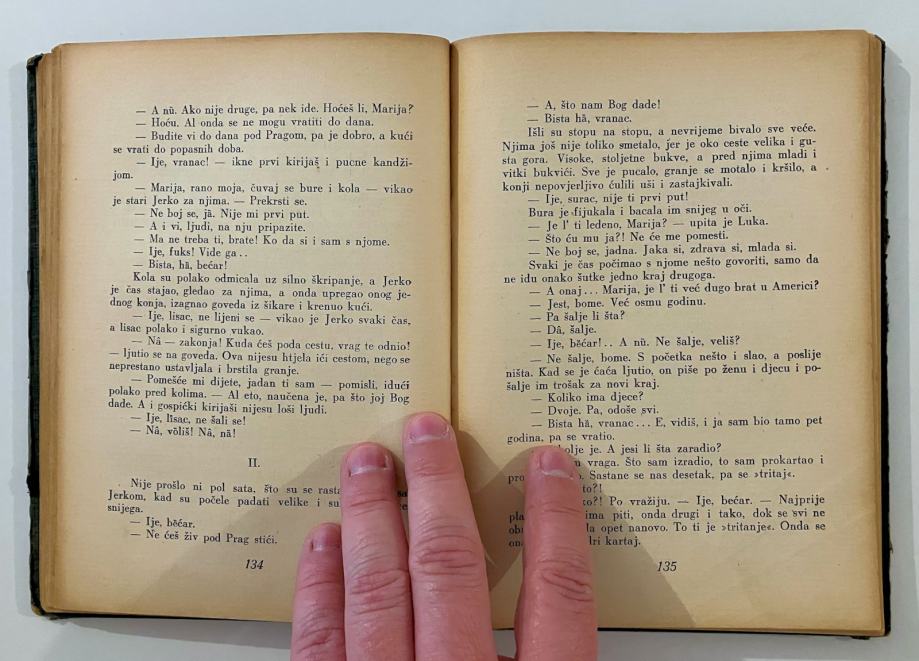 — A nū. Ako nije druge, pa nek ide. Hoćeš li, Marija?
— Hoću. Al onda se ne mogu vratiti do dana.
— Budite vi do dana pod Pragom, pa je dobro, a kući
se vrati do popasnih doba.
— Ije, vranac! — ikne prvi kirijaš i pucne kandži-
jom.
— Marija, rano moja, čuvaj se bure i kola — vikao
je stari Jerko za njima. — Prekrsti se.
— Ne boj se, jā. Nije mi prvi put.
— A i vi, ljudi, na nju pripazite.
— Ma ne treba ti, brate! Ko da si i sam s njome.
— Ije, fuks! Vide ga..
— Bista, hā, bećar!
Kola su polako odmicala uz silno škripanje, a Jerko
je čas stajao, gledao za njima, a onda upregao onog je-
dnog konja, izagnao goveda iz šikare i krenuo kući.
— Ije, lisac, ne lijeni se — vikao je Jerko svaki čas,
a lisac polako i sigurno vukao.
— Nâ — zakonja! Kuda ćeš poda cestu, vrag te odnio!
— ljutio se na goveda. Ova nijesu htjela ići cestom, nego se
neprestano ustavljala i brstila granje.
— Pomešće mi dijete, jadan ti sam — pomisli, idući
polako pred kolima. — Al eto, naučena je, pa što joj Bog
dade. A i gospićki kirijaši nijesu loši ljudi.
— Ije, lisac, ne šali se!
— Nâ, vōliš! Nâ, nā!
II.
Nije prošlo ni pol sata, što su se
Jerkom, kad su počele padati velike i
snijega.
— Ije, bĕćar.
— Ne ćeš živ pod Prag stići.
134
— A, što nam Bog dade!
— Bista hā, vranac.
Išli su stopu na stopu, a nevrijeme bivalo sve veće.
Njima još nije toliko smetalo, jer je oko ceste velika i gu-
sta gora. Visoke, stoljetne bukve, a pred njima mladi i
vitki bukvići. Sve je pucalo, granje se motalo i kršilo, a
konji nepovjerljivo ćulili uši i zastajkivali.
— Ije, surac, nije ti prvi put!
Bura je fijukala i bacala im snijeg u oči.
— Je l' ti ledeno, Marija? — upita je Luka.
— Što ću mu ja?! Ne će me pomesti.
— Ne boj se, jadna. Jaka si, zdrava si, mlada si.
Svaki je čas počimao s njome nešto govoriti, samo da
ne idu onako šutke jedno kraj drugoga.
— A onaj... Marija, je l' ti već dugo brat u Americi?
— Jest, bome. Već osmu godinu.
— Pa šalje li šta?
— Dâ, šalje.
— Ije, bĕćar!.. A nū. Ne šalje, veliš?
— Ne šalje, bome. S početka nešto i slao, a poslije
ništa. Kad se je ćaća ljutio, on piše po ženu i djecu i po-
šalje im trošak za novi kraj.
— Koliko ima djece?
— Dvoje. Pa, odoše svi.
— Bista hā, vranac... E, vidiš, i ja sam bio tamo pet
godina, pa se vratio.
olje je. A jesi li šta zaradio?
vraga. Što sam izradio, to sam prokartao i
Sastane se nas desetak, pa se »tritaj«.
to?!
ko?! Po vražiju. — Ije, bećar. — Najprije
ima piti, onda drugi i tako, dok se svi ne
la opet nanovo. To ti je »tritanje«. Onda se
dri kartaj.
135